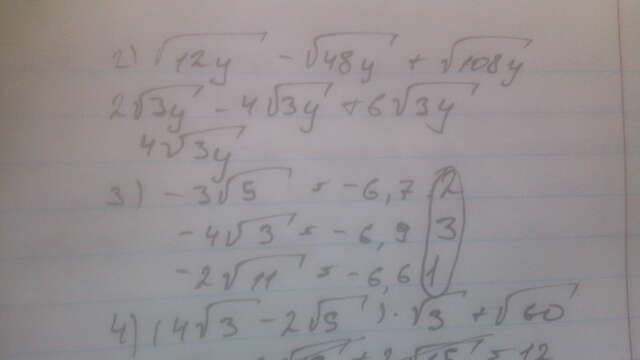 2) √12y - √48y + √108y
2√3y - 4√3y + 6√3y
4√3y
3) -3√5 = -6,7 2
-4√3 = -6,9 3
-2√11 = -6,6 1
4) (4√3 - 2√5) · √3 + √60
= 12